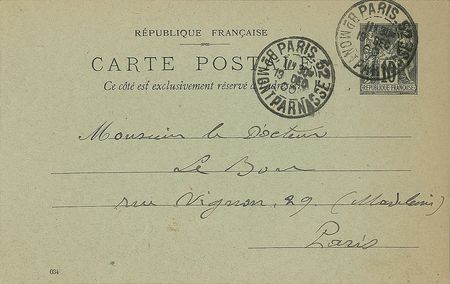 RÉPUBLIQUE FRANÇAISE
CARTE POSTALE
Ce côté est exclusivement réservé à
PARIS 52
19 DEC
Bd MONTPARNASSE
PARIS 52
Bd MONTPARNASSE
10
RÉPUBLIQUE FRANÇAISE
Monsieur le Docteur
Le Bon
rue Vignon, 29 (Madeleine)
Paris
034